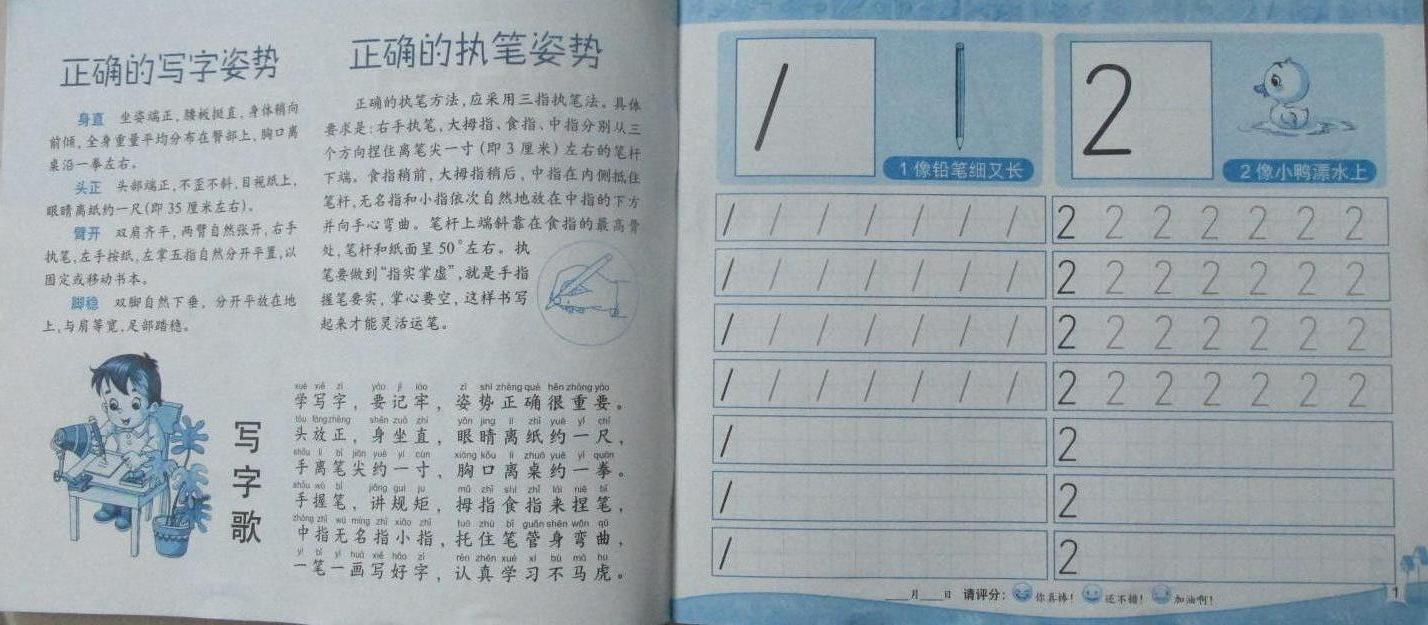 正确的写字姿势
身直 坐姿端正,腰板挺直,身体稍向
前倾,全身重量平均分布在臀部上,胸口离
桌沿一拳左右。
头正 头部端正,不歪不斜,目视纸上,
眼睛离纸约一尺(即 35 厘米左右)。
臂开 双肩齐平,两臂自然张开,右手
执笔,左手按纸,左掌五指自然分开平置,以
固定或移动书本。
脚稳 双脚自然下垂, 分开平放在地
上,与肩等宽,足部踏稳。
正确的执笔姿势
正确的执笔方法,应采用三指执笔法。具体
要求是:右手执笔,大拇指、食指、中指分别从三
个方向捏住离笔尖一寸(即 3 厘米)左右的笔杆
下端。食指稍前,大拇指稍后,中指在内侧抵住
笔杆,无名指和小指依次自然地放在中指的下方
并向手心弯曲。笔杆上端斜靠在食指的最高骨
处,笔杆和纸面呈 50°左右。执
笔要做到“指实掌虚”,就是手指
握笔要实,掌心要空,这样书写
起来才能灵活运笔。
写字歌
xué xiě zì yào jì láo zī shì zhèng què hěn zhòng yào
学写字,要记牢,姿势正确很重要。
tóu fàng zhèng shēn zuò zhí yǎn jing lí zhǐ yuē yì chǐ
头放正,身坐直,眼睛离纸约一尺,
shǒu lí bǐ jiān yuē yí cùn xiōng kǒu lí zhuō yuē yì quán
手离笔尖约一寸,胸口离桌约一拳。
shǒu wò bǐ jiǎng guī ju mǔ zhǐ shí zhǐ lái niē bǐ
手握笔,讲规矩,拇指食指来捏笔,
zhōng zhǐ wú míng zhǐ xiǎo zhǐ tuō zhù bǐ guǎn shēn wān qū
中指无名指小指,托住笔管身弯曲,
yì bǐ yí huà xiě hǎo zì rèn zhēn xué xí bù mǎ hu
一笔一画写好字,认真学习不马虎。
1
1 像铅笔细又长
2
2 像小鸭漂水上
1 1 1 1 1 1 1 2 2 2 2 2 2 2
1 1 1 1 1 1 1 2 2 2 2 2 2 2
1 1 1 1 1 1 1 2 2 2 2 2 2 2
1 1 1 1 1 1 1 2 2 2 2 2 2 2
1 2
1 2
1 2
___月___日 请评分: 你真棒! 还不错! 加油啊!
1